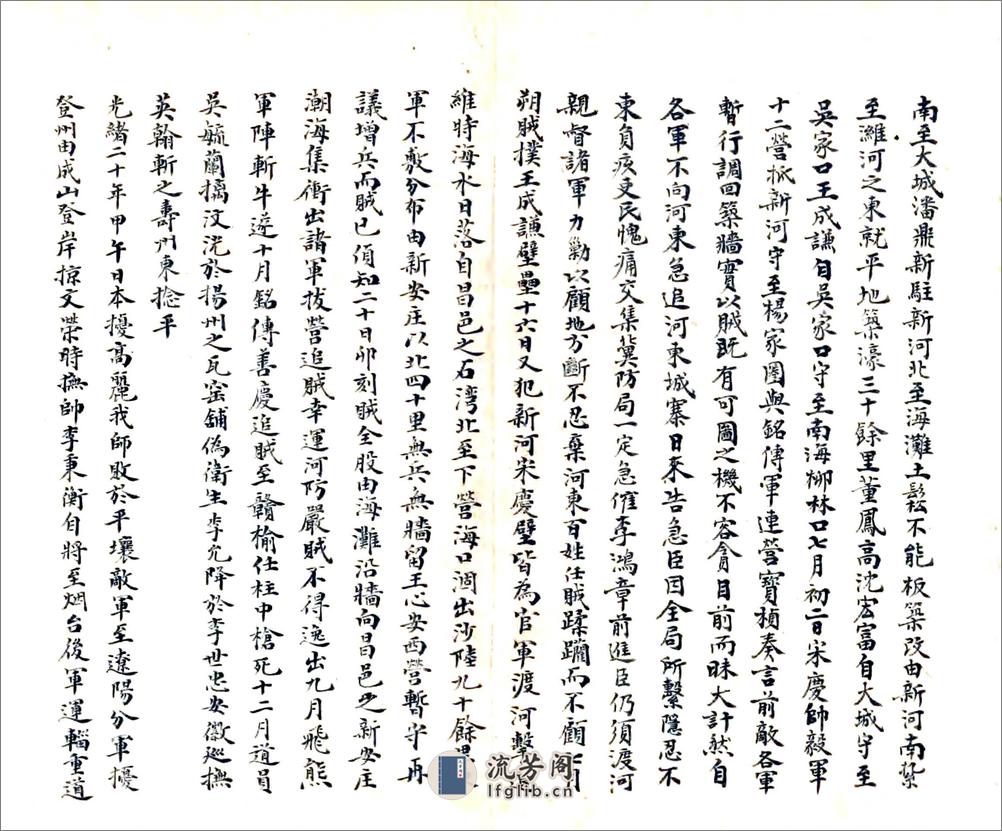 南至大城潘鼎新駐新河北至海灘土鬆不能板築改由新河南紥
至濰河之東就平地築濠三十餘里董鳳高沈宏富自大城守至
吳家口王成謙自吳家口守至南海柳林口七月初二日宋慶帥毅軍
十二營抵新河守至楊家圈與銘傳軍連營寶楨奏言前敵各軍
暫行調回築牆實以賊既有可圖之機不容貪目前而昧大計然自
各軍不向河東急追河東城寨日來告急臣因全局所繫隱忍不
東負疚吏民愧痛交集冀防局一定急催李鴻章前進臣仍須渡河
親督諸軍力勦以顧地方斷不忍棄河東百姓任賊蹂躪而不顧
朔賊撲王成謙壁壘十六日又犯新河宋慶壁皆為官軍渡河擊
維時海水日落自昌邑之石湾北至下營海口涸出沙陸九十餘里
軍不敷分布由新安庄以北四十里無兵無牆留王心安西營暫守再
議增兵而賊已偵知二十日卯刻賊全股由海灘沿牆向昌邑之新安庄
潮海集衝出諸軍拔營追賊幸運河防嚴賊不得逸出九月飛熊
軍陣斬牛遂十月銘傳善慶追賊至贛榆任柱中槍死十二月道員
吳毓蘭擒汶洸於揚州之瓦窑舖偽衛生李允降於李世忠安徽巡撫
英翰斬之壽州東捻平
光緒二十年甲午日本擾高麗我師敗於平壤敵軍至遼陽分軍擾
登州由成山登岸掠文榮時撫帥李秉衡自將至烟台後軍運輜重道
流芳阁
lfglib.cn